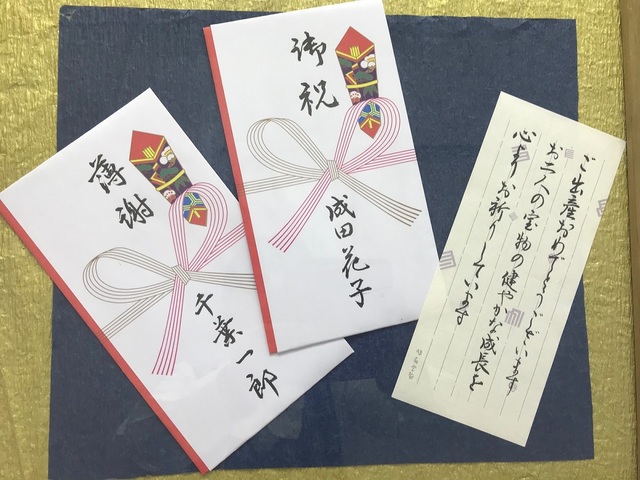 薄謝
千葉一郎
御祝
成田花子
ご出産おめでとうございます
お二人の宝物の健やかな成長を
心よりお祈りしています